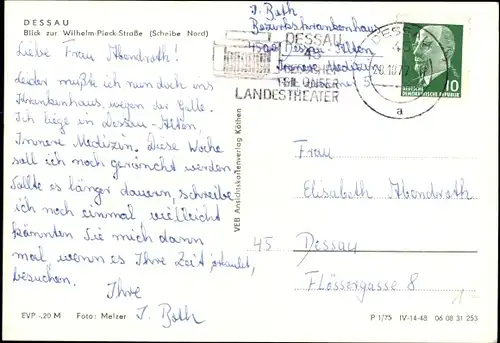 DESSAU
Blick zur Wilhelm-Pieck-Straße (Scheibe Nord)
Liebe Frau Abendroth!
Leider mußte ich nun doch ins
Krankenhaus wegen der Galle.
Ich liege in Dessau-Alten,
Innere Medizin. Diese Woche
soll ich noch geröntgt werden
Sollte es länger dauern, schreibe
ich noch einmal vielleicht
könnten Sie mich dann
mal wenn es Ihre Zeit erlaubt,
besuchen.
Ihre
I. Both
EVP -,20 M Foto: Melzer
VEB Ansichtskartenverlag Köthen
I. Both
Bezirkskrankenhaus
4500 Dessau Alten
Innere Medizin
DESSAU
45
BESUCHEN
SIE UNSER
LANDESTHEATER
DESSAU
45
20.10.77
a
10
DEUTSCHE
DEMOKRATISCHE REPUBLIK
Frau
Elisabeth Abendroth
45 Dessau
Flössergasse 8
1.-
P 1/75 IV-14-48 06 08 31 253